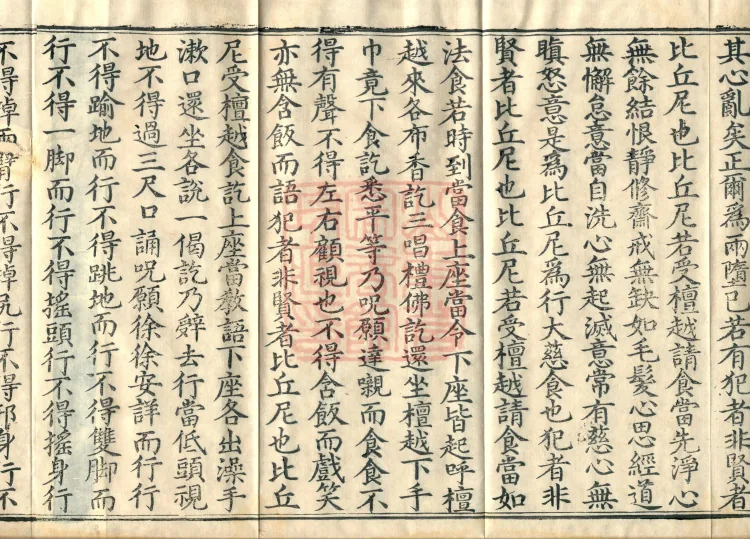 其心亂矣正爾爲兩墮已若有犯者非賢者
比丘尼也比丘尼若受檀越請食當先淨心
無餘結恨靜修齋戒無缺如毛髮心思經道
無懈怠意當自洗心無起滅意常有慈心無
瞋怒意是爲比丘尼爲行大慈食也犯者非
賢者比丘尼也比丘尼若受檀越請食當如
法食若時到當食上座當令下座皆起呼檀
越來各布香訖三唱禮佛訖還坐檀越下手
巾竟下食訖悉平等乃呪願達嚫而食食不
得有聲不得左右顧視也不得含飯而戲笑
亦無含飯而語犯者非賢者比丘尼也比丘
尼受檀越食訖上座當教語下座各出澡手
漱口還坐各說一偈訖乃辭去行當低頭視
地不得過三尺口誦呪願徐徐安詳而行行
不得踰地而行不得跳地而行不得雙脚而
行不得一脚而行不得搖頭行不得搖身行
不得掉兩臂行不得掉尻行不得邪身行不